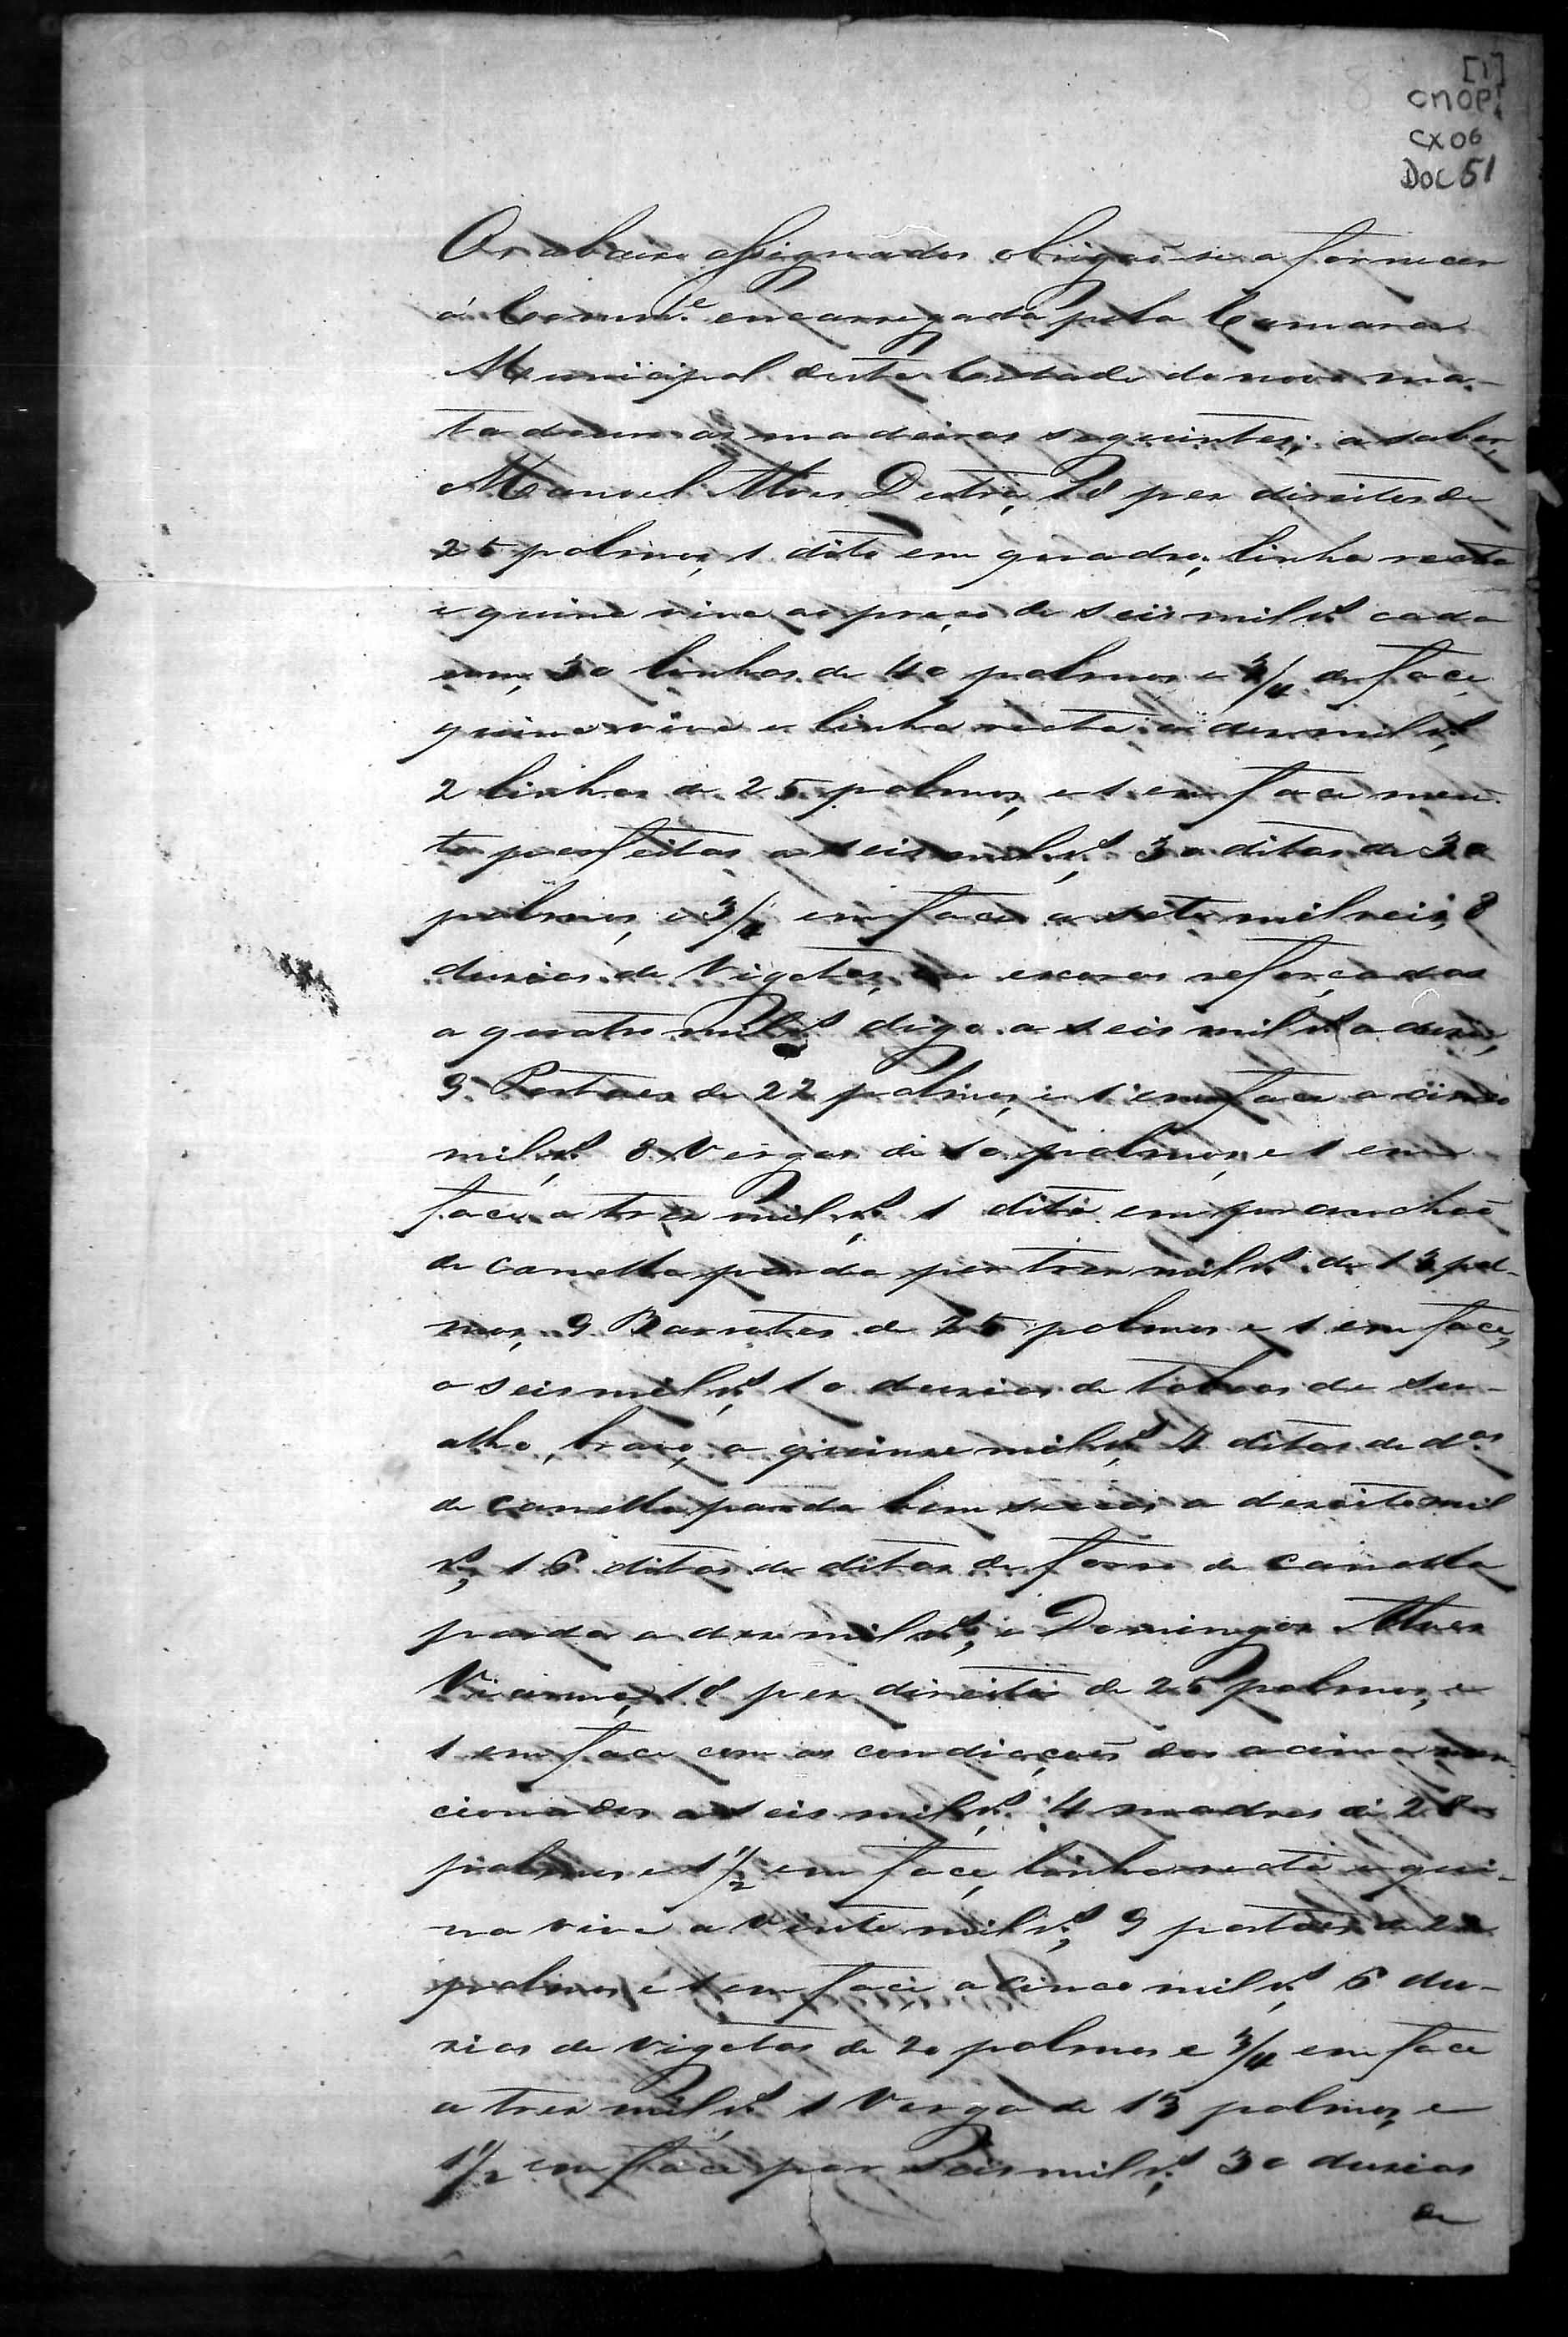 [1]
CMOP
CX 06
DOC 51
Os abaixo assignados obrigaõ-se a fornecer
á Comm.e encarregada pela Camara
Municipal desta Cidade do novo ma-
tadouro as madeiras seguintes; a saber,
Manoel Alves Dutra, 18 pes direitos de
25 palmos, 1 dito em quadro, linha recta
e quina viva ao preço de seis mil rs. cada
um, 30 linhas de 40 palmos e 3/4 de face,
quina viva e linha recta a dez mil rs,
2 linhas de 25 palmos, e 1 em face mui-
to perfeitas a seis mil rs, 30 ditas de 30
palmos, e 3/4 em face a sete mil reis, 8
duzias de Vigotas, ou escoras reforçadas
a quatro mil rs digo a seis mil rs a duzia,
9 Portaes de 22 palmos, e 1 em face a cinco
mil rs, 8 Vergas de 10 palmos, e 1 em
face, a tres mil rs, 1 dita em pranchaõ
de canella parda por tres mil rs. de 13 pal-
mos, 9 Barrotes de 25 palmos e 1 em face,
a seis mil rs, 10 duzias de taboas de so-
alho, bravo, a quinze mil rs, 4 ditas de d.as
de canella parda bem seccas a dezoito mil
rs, 16 ditas de ditas de forro de canella
parda a dez mil rs; e Domingos Alves
Vianna, 18 pes direitos de 25 palmos, e
1 em face com as condicçoẽs dos acima men-
cionados a seis mil rs, 4 madres de 28
palmos e 1 1/2 em face, linha recta e qui-
na viva a vinte mil rs, 9 portaes de 22
palmos e 1 em face a cinco mil rs, 6 du-
zias de vigotas de 20 palmos e 3/4 em face
a tres mil rs, 1 Verga de 13 palmos, e
1 1/2 em face por seis mil rs, 30 duzias
de